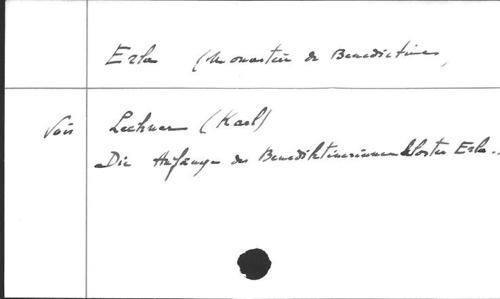 Erla (Monastère de Bénédictines)
Voir Lechner (Karl)
Die Anfänge des Benediktinerinnenkloster Erla.